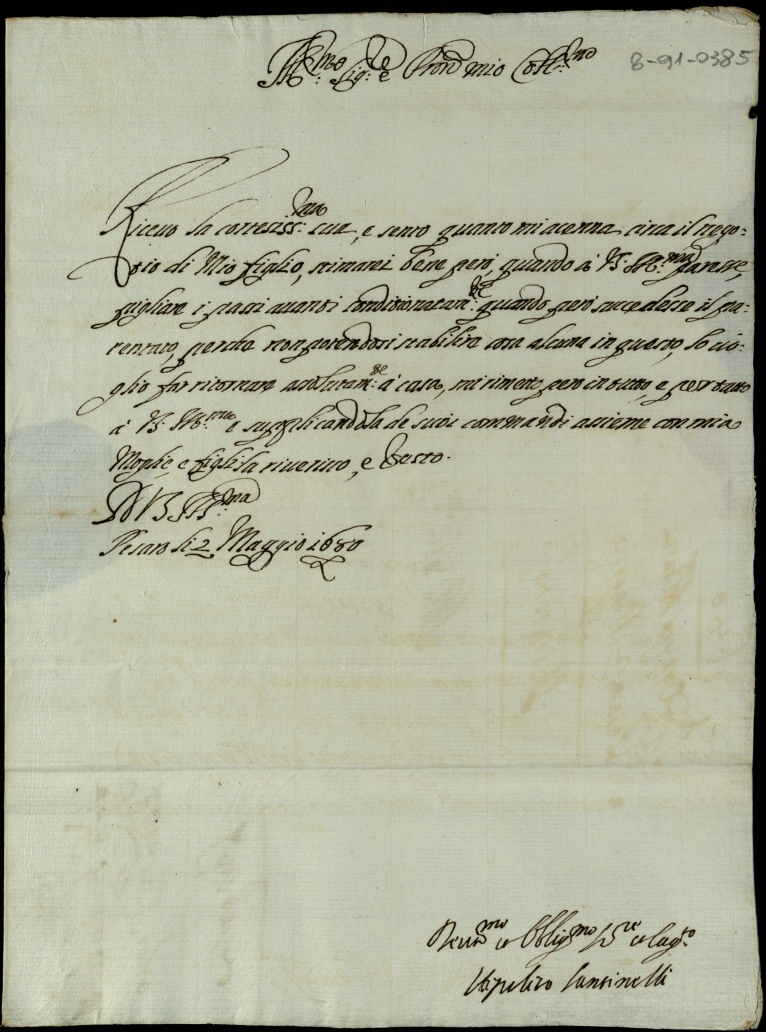 Ill:mo Sig:re e Pron mio Coll:mo
8-91-0385
Ricevo la cortesiss:ma sua, e sento quanto mi acenna circa il nego-
tio di Mio figlio, stimarei bene però, quando à V.S. Ill:ma paresse,
pigliare i passi avanti conditionatam:te quando però succedesse il pa-
rentato, perche non potendosi stabilire cosa alcuna in questo, lo vo-
glio far ritornare assolutam:te à casa, mi rimetto però in tutto, e per tutto
à V.S. Ill:ma e supplicandola de suoi commandi assieme con mia
Moglie, e figli la riverisco, e resto.
Di V.S. Ill:ma
Pesaro li 2 Maggio 1680
Devot:mo et Obblig:mo S:re
Santinelli